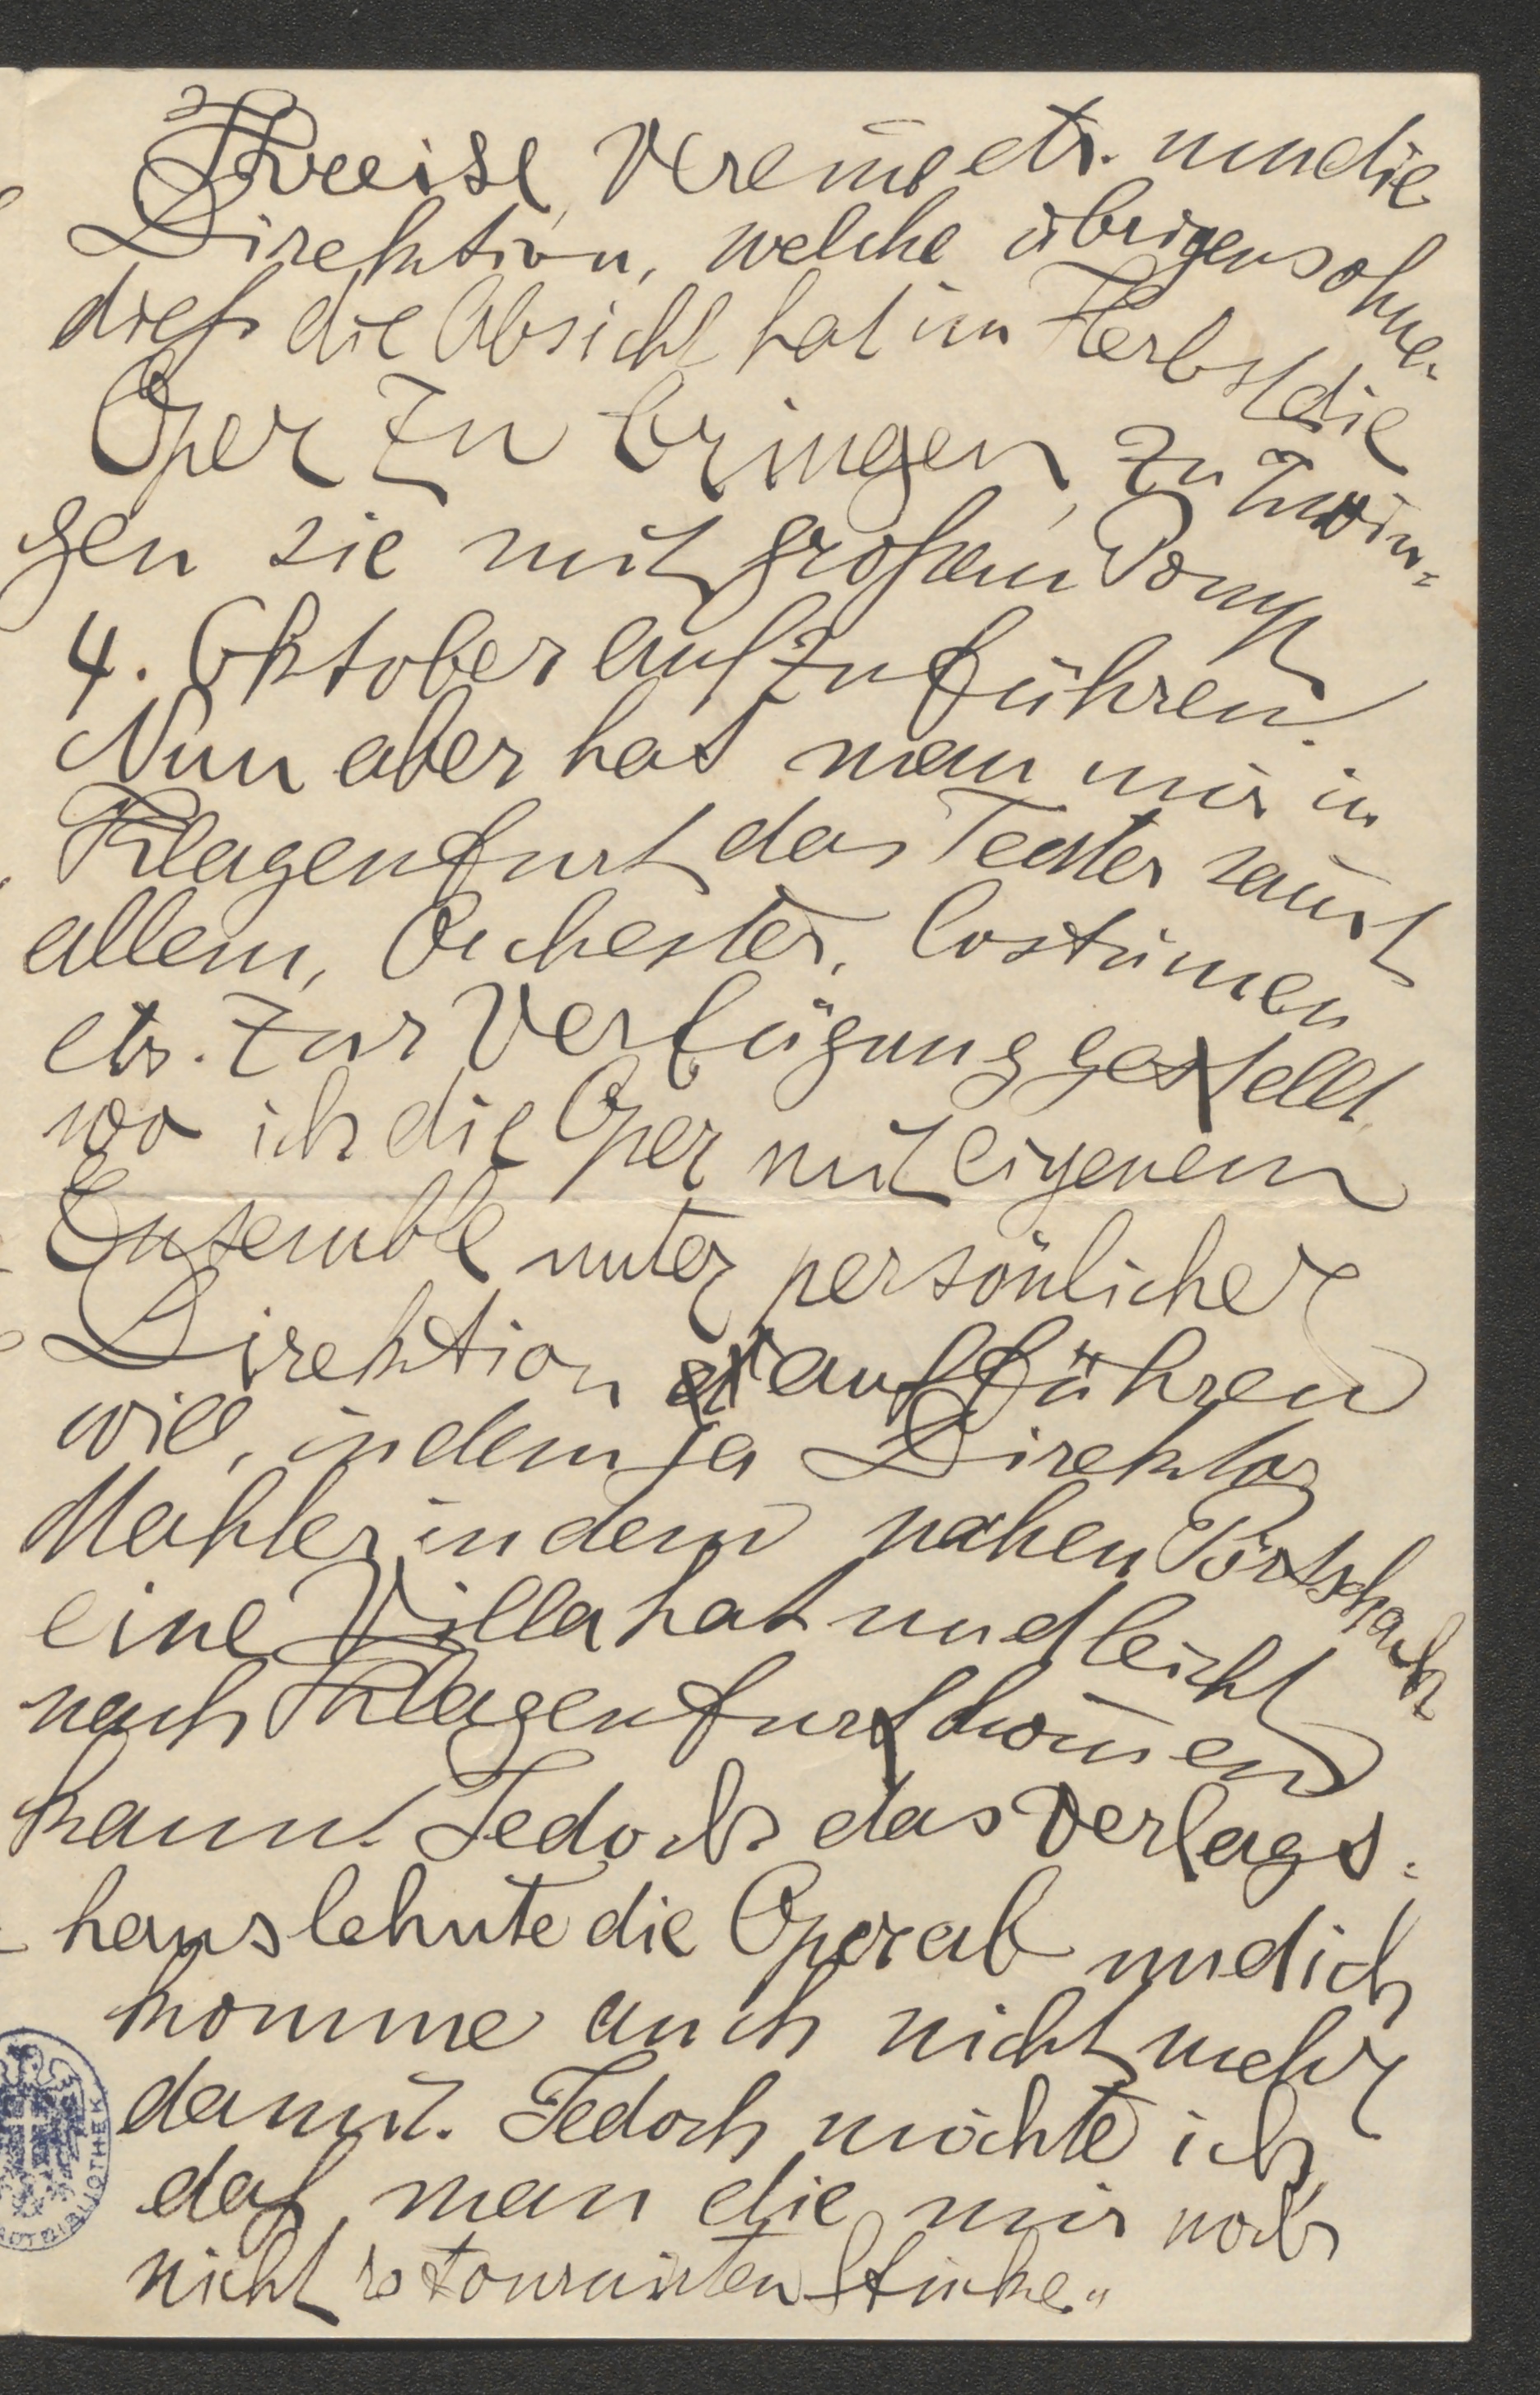 Kreise, Vereine etc. um die
Direktion, welche übrigens ohne
dieß die Absicht hat im Herbst die
Oper zu bringen, zu zwin=
gen sie mit großem Pomp
4. Oktober aufzuführen.
Nun aber hat man mir in
Klagenfurt das Teater samt
allem, Orchester, Costümen
etc. zur Verfügung gestellt,
wo ich die Oper mit eigenem
Ensemble unter persönlicher
Direktion aufführen
will, indem ja Direktor
Mahler in dem nahen Pörtschach
eine Villa hat und leicht
nach Klagenfurt kom̄en
kann. Jedoch das Verlags=
haus lehnte die Oper ab und ich
komme auch nicht mehr
damit. Jedoch möchte ich,
daß man die mir noch
nicht retournirten Stücke